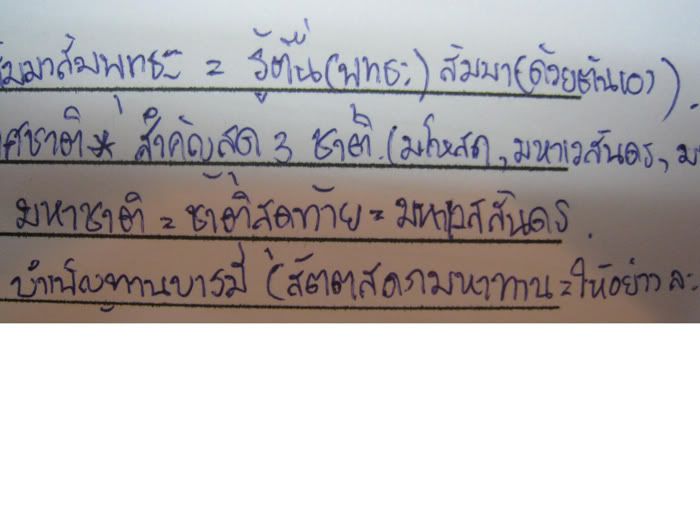 ัมมาสัมพุทธะ = รู้ตื่น (พุทธะ) สัมมา (ด้วยตนเอง)
ศชาติ* สำคัญสุด 3 ชาติ (มโหสถ, มหาเวสันดร, ม
มหาชาติ = ชาติสุดท้าย = มหาเวสสันดร.
บำเพ็ญทานบารมี (สัตตสดกมหาทาน = ให้อย่างละ